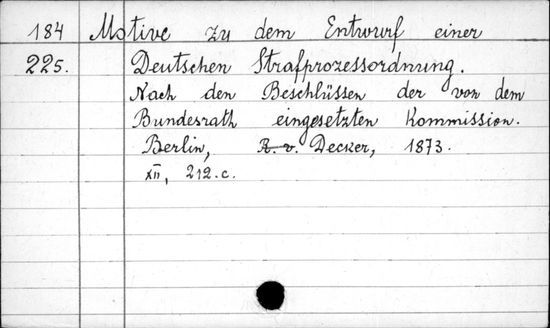 184 Motive zu dem Entwurf einer
225. Deutschen Strafprozessordnung.
Nach den Beschlüssen der von dem
Bundesrath eingesetzten Kommission.
Berlin, R. v. Decker, 1873.
XII, 212.c.